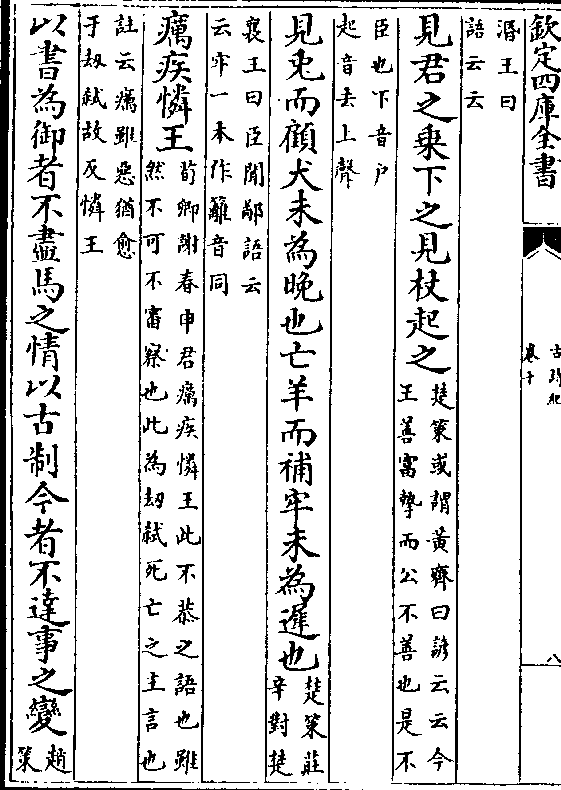 欽定四庫全書
古詩紀
卷十
八
湣王曰
語云云
見君之乗下之見杖起之
楚策或謂黃齊曰諺云云今
王善富摯而公不善也是不
臣也下音户
起音去上聲
見兎而顧犬未為晚也亡羊而補牢未為遲也
楚策莊
辛對楚
襄王曰臣聞鄙語云
云牢一本作籬音同
癘疾憐王
荀卿謝春申君癘疾憐王此不恭之語也雖
然不可不審察也此為刼弑死亡之主言也
註云癘雖惡猶愈
于刼弑故反憐王
以書為御者不盡馬之情以古制今者不達事之變
趙
策